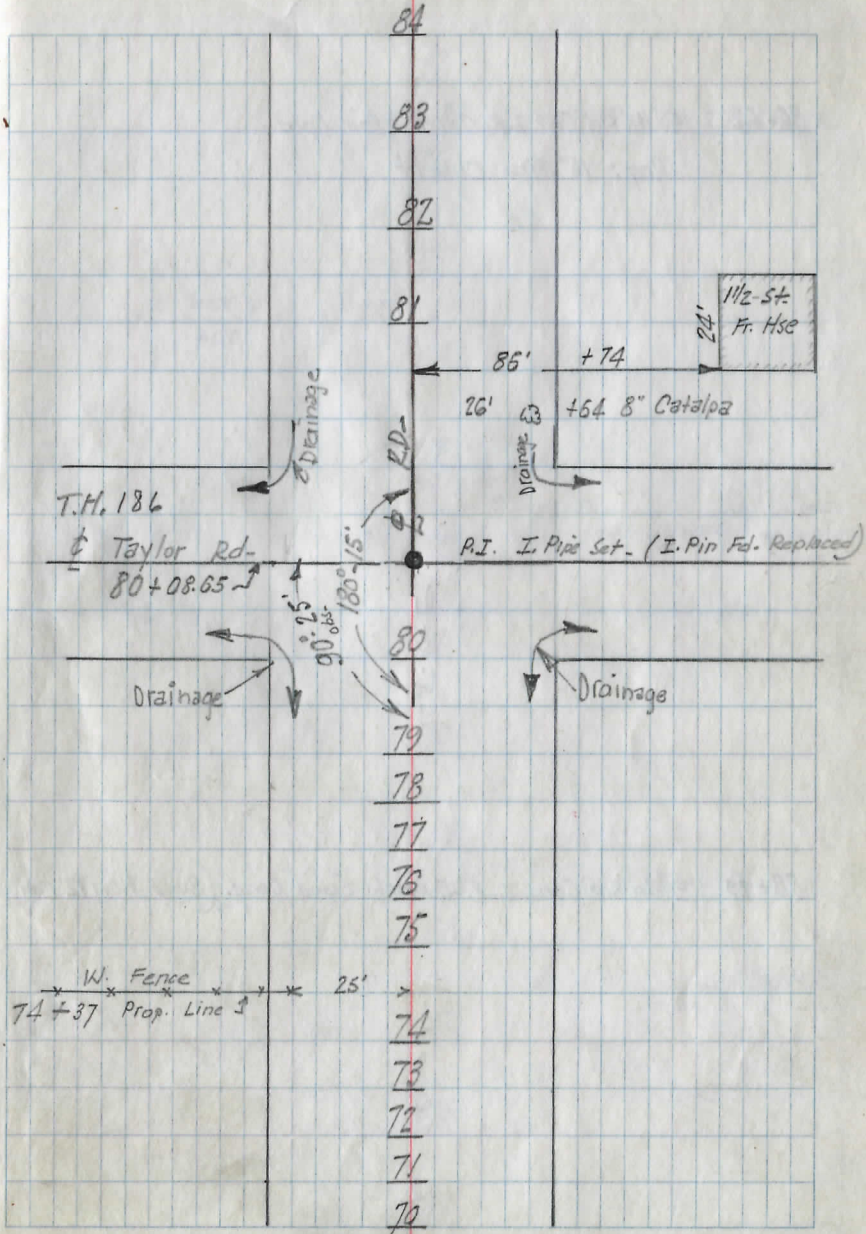 84
83
82
1½-St.
Fr. Hse
24'
81
86' +74
26' +64 8" Catalpa
Drainage
Drainage
℄ RD-
T.H. 186
℄ Taylor Rd-
80+08.65
P.I. I. Pipe Set- (I. Pin Fd. Replaced)
180°-15'
90°-25'
obs-
80
Drainage
Drainage
79
78
77
76
75
W. Fence
25'
74+37 Prop. Line
74
73
72
71
70